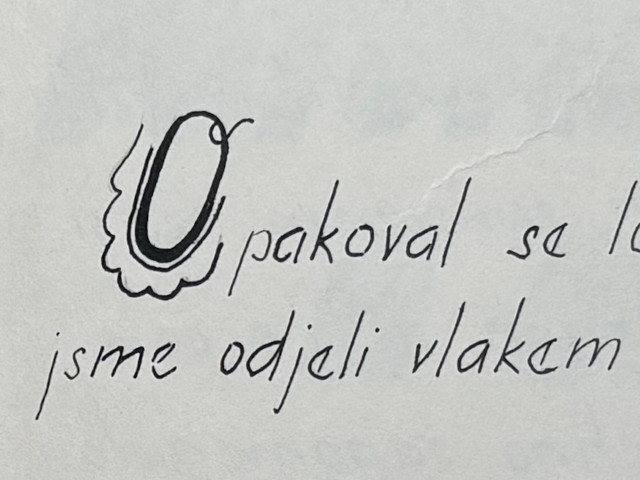 Opakoval se
jsme odjeli vlakem